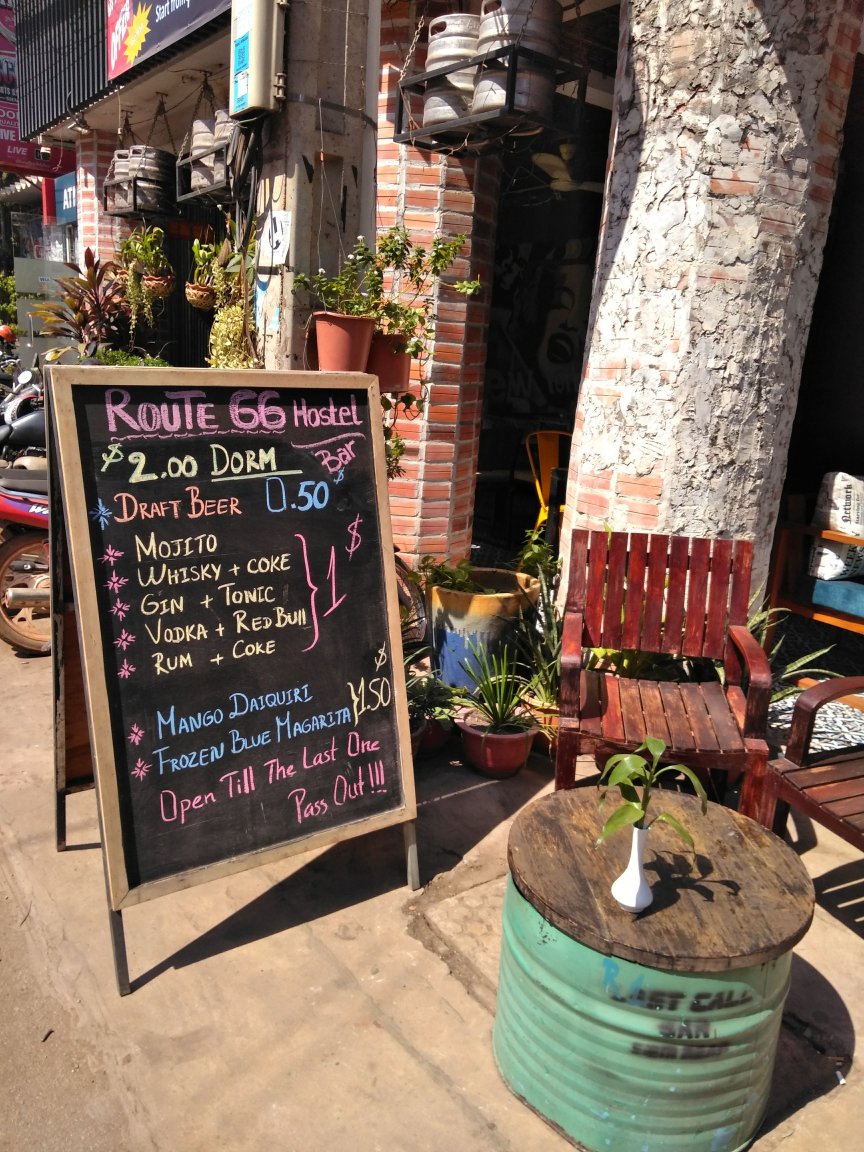 Start from
OFFER
LIVE
ATM
ROUTE 66 Hostel
Bar
$ 2.00 DORM
DRAFT BEER 0.50 $
MOJITO
WHISKY + COKE
GIN + TONIC
VODKA + RED BULL
RUM + COKE
1 $
MANGO DAIQUIRI
FROZEN BLUE MAGARITA
$ 1.50
Open Till The Last One
Pass Out !!!
Network
LAST CALL
BAR